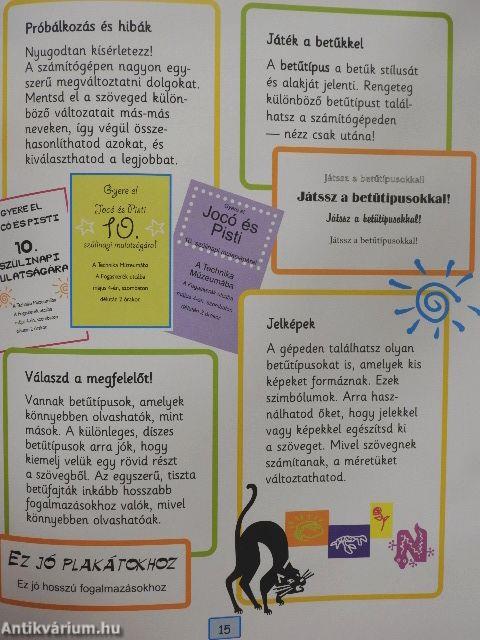 Próbálkozás és hibák
Nyugodtan kísérletezz!
A számítógépen nagyon egy-
szerű megváltoztatni dolgokat.
Mentsd el a szöveged külön-
böző változatait más-más
neveken, így végül össze-
hasonlíthatod azokat, és
kiválaszthatod a legjobbat.
GYERE EL
JOCÓ ÉS PISTI
10.
SZÜLINAPI
MULATSÁGÁRA
A Technika Múzeumába
A Fogaskerék utcába
május 4-én, szombaton
délután 2 órakor
Gyere el
Jocó és Pisti
10.
szülinapi mulatságára!
A Technika Múzeumába
A Fogaskerék utcába
május 4-én, szombaton
délután 2 órakor
Gyere el
Jocó és
Pisti
10. szülinapi mulatságára!
A Technika
Múzeumába
A Fogaskerék utcába
május 4-én, szombaton
délután 2 órakor
Válaszd a megfelelőt!
Vannak betűtípusok, amelyek
könnyebben olvashatók, mint
mások. A különleges, díszes
betűtípusok arra jók, hogy
kiemelj velük egy rövid részt
a szövegből. Az egyszerű, tiszta
betűfajták inkább hosszabb
fogalmazásokhoz valók, mivel
könnyebben olvashatóak.
EZ JÓ PLAKÁTOKHOZ
Ez jó hosszú fogalmazásokhoz
Játék a betűkkel
A betűtípus a betűk stílusát
és alakját jelenti. Rengeteg
különböző betűtípust talál-
hatsz a számítógépeden
— nézz csak utána!
Játssz a betűtípusokkal!
Játssz a betűtípusokkal!
Játssz a betűtípusokkal!
Játssz a betűtípusokkal!
Jelképek
A gépeden találhatsz olyan
betűtípusokat is, amelyek kis
képeket formáznak. Ezek
szimbólumok. Arra hasz-
nálhatod őket, hogy jelekkel
vagy képekkel egészítsd ki
a szöveget. Mivel szövegnek
számítanak, a méretüket
változtathatod.
15
Antikvárium.hu